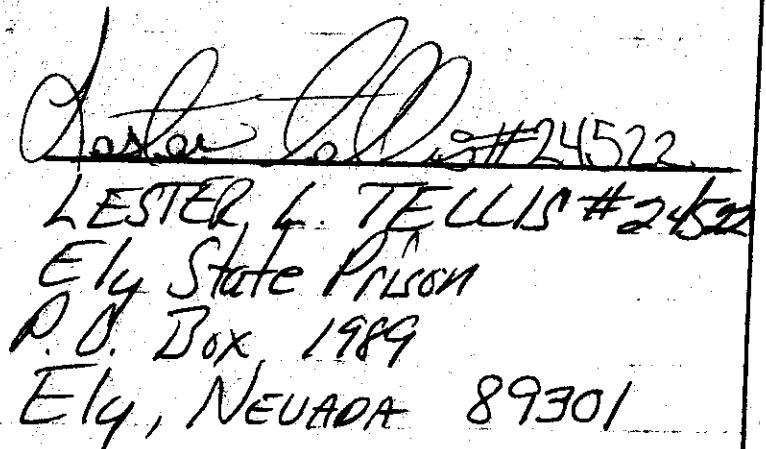 Lester Tellis #24522
LESTER L. TELLIS #24522
Ely State Prison
P.O. Box 1989
Ely, NEVADA 89301